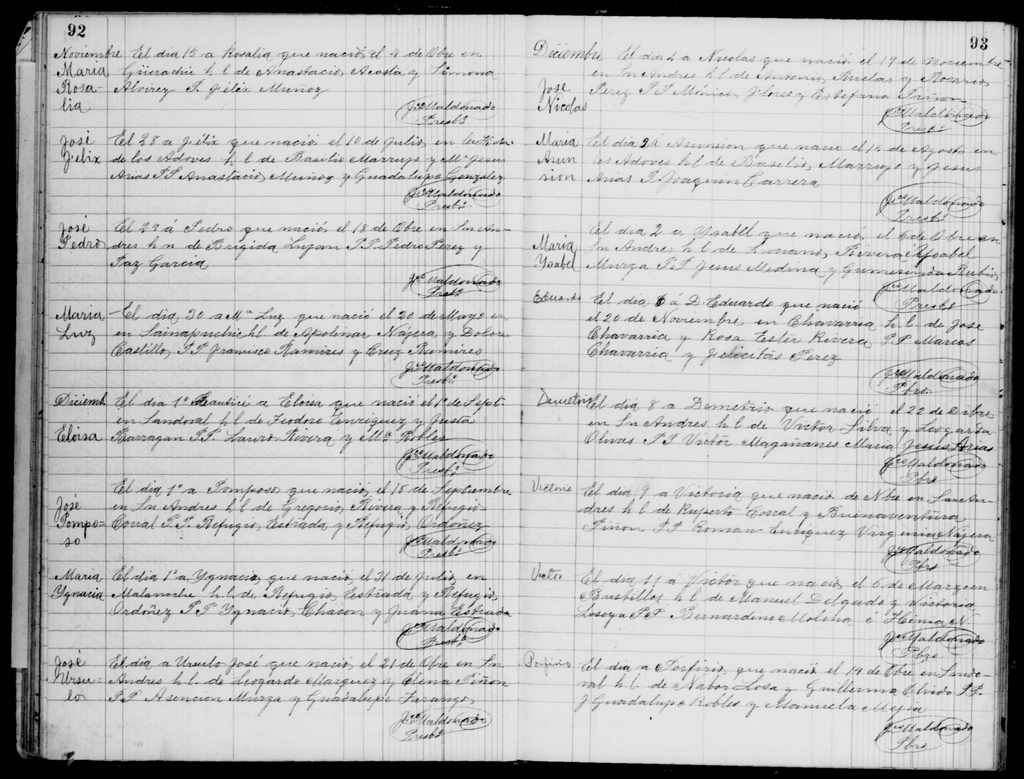 92
Noviembre El dia 15 a Rosalia que nació el 4 de Obre en
Maria Rosalia h. l. de Anastacio Acosta y Simona
Alvirez P. Felix Muñoz
Jo Maldonado
Presbo
José Felix El 28 a Felix que nació el 10 de Julio en
de los Adoves h. l. de Basilio Marrufo y Ma Jesus
Arias P.P. Anastacio Muñoz y Guadalupe Gonzalez
Jo Maldonado
Presbo
José Pedro El 22 á Pedro que nació el 18 de Obre en Sn An-
dres h. n. de Brigida Lujan P.P. Pedro Perez y
Paz Garcia
Jo Maldonado
Presbo
Maria Luz El dia 30 a Ma Luz que nació el 20 de Mayo en
en Sainapuchic h. l. de Apolinar Nájera y Dolores
Castillo, P.P. Francisco Ramires y Cruz Ramires
Jo Maldonado
Presbo
Diciemb El dia 1o Bautice a Eloisa que nació el 1o de Sept-
Eloisa en Sandoval h. l. de Teodoro Enriquez y Justa
Barragan P.P. Lauro Rivera y Ma Robles
Jo Maldonado
Presbo
El dia 1o a Pomposo que nació el 15 de Septiembre
José Pompo-so en Sn Andres h. l. de Gregorio Rivera y Refugio
Corral P.P. Refugio Estrada y Refugio Ordoñez
Jo Maldonado
Presbo
Maria Ygnacia El dia 1o a Ygnacia que nació el 31 de Julio en
Malanoche h. l. de Refugio Estrada y Refugio
Ordoñez P.P. Ygnacio Chacon y Juana Estrada
Jo Maldonado
Presbo
José Ursu-lo El dia a Ursulo José que nació el 21 de Obre en Sn
Andres h. l. de Leogardo Marquez y Elena Piñon
P.P. Asencion Murga y Guadalupe
Jo Maldonado
Presbo
93
Diciembre El dia 2 a Nicolas que nació el 17 de Noviembre
José Nicolas en Sn Andres h. l. de Antonio Ruelas y Rosario
Perez P.P. Mónico Flores y Estefana Piñon
Jo Maldonado
Presbo
Maria Asun-sion El dia 2 a Asuncion que nació el 14 de Agosto en
los Adoves h. l. de Basilio Marrufo y Jesus
Arias P. Joaquin Carrera
Jo Maldonado
Presbo
El dia 2 a Ysabel que nació el 6 de Obre en
Maria Ysabel Sn Andres h. l. de Luciano Rivera é Ysabel
Murga P.P. Jesus Medina y Gumesinda Rubio
Jo Maldonado
Presbo
Eduardo El dia 6 á D. Eduardo que nació
el 20 de Noviembre en Chavarria h. l. de José
Chavarria y Rosa Ester Rivera P.P. Marias
Chavarria y Felicitas Perez
Jo Maldonado
Pbro.
Demetrio El dia 8 a Demetrio que nació el 22 de Obre
en Sn Andres h. l. de Victor Silva y Leogarda
Olivas P.P. Victor Magañanes Maria Jesus Arias
Jo Maldonado
Pbro
Victoria El dia 9 a Victoria que nació de Nbre en San An-
dres h. l. de Ruperto Corral y Buenaventura
Piñon P.P. Roman Enriquez Virginia Nájera
Jo Maldonado
Pbro
Victor El dia 11 a Victor que nació el 6 de Marzo en
Bustillos h. l. de Manuel Delgado y Victoria
Loseya P.P. Bernardino Molina é N.
Jo Maldonado
Pbro
Porfirio El dia a Porfirio que nació el 14 de Obre en Sando-
val h. l. de Nabor Losa y Guillerma Olvido P.P.
J. Guadalupe Robles y Manuela Mejia
Jo Maldonado
Pbro